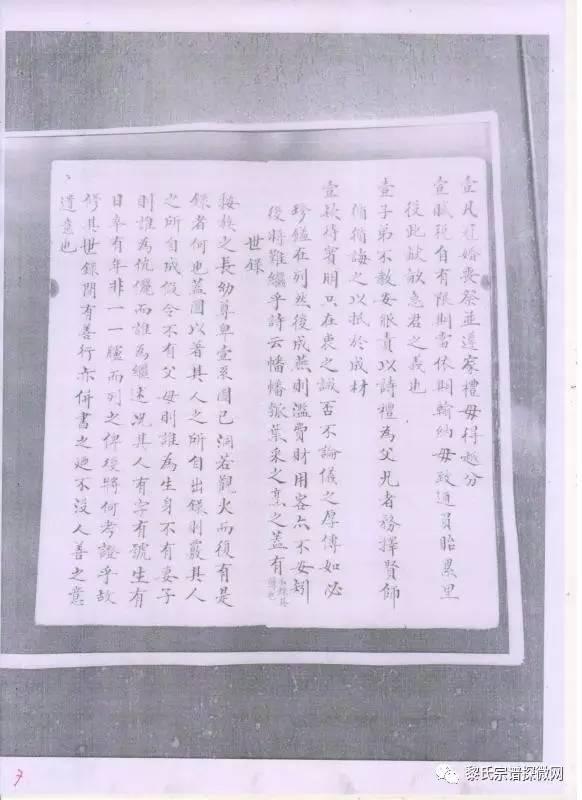 壹凡冠婚喪祭並遵家禮毋得越分
壹賦稅自有限期當依期輸納毋致逋負貽累里
役此献敵急君之義也
壹子弟不教安眠責以詩禮為父兄者務擇賢師
循循誨之以抵於成材
壹欵待賓朋只在衷之誠否不論儀之厚薄如必
珍饈在列然後成燕則濫費財用客亦不安
後将難繼乎詩云幡幡瓠葉采之烹之盖有
世錄
按族之長幼尊卑壹系圖已洞若觀火而復有是
錄者何也蓋圖以著其人之所自出錄則覈其人
之所自成假令不有父母則誰為生身不有妻子
則誰為伉儷而誰為繼述况其人有字有號生有
日卒有年非一一臚而列之俾後將何考證乎故
修其世錄間有善行亦併書之迺不没人善之意
遺意也
7
黎氏宗谱探微网